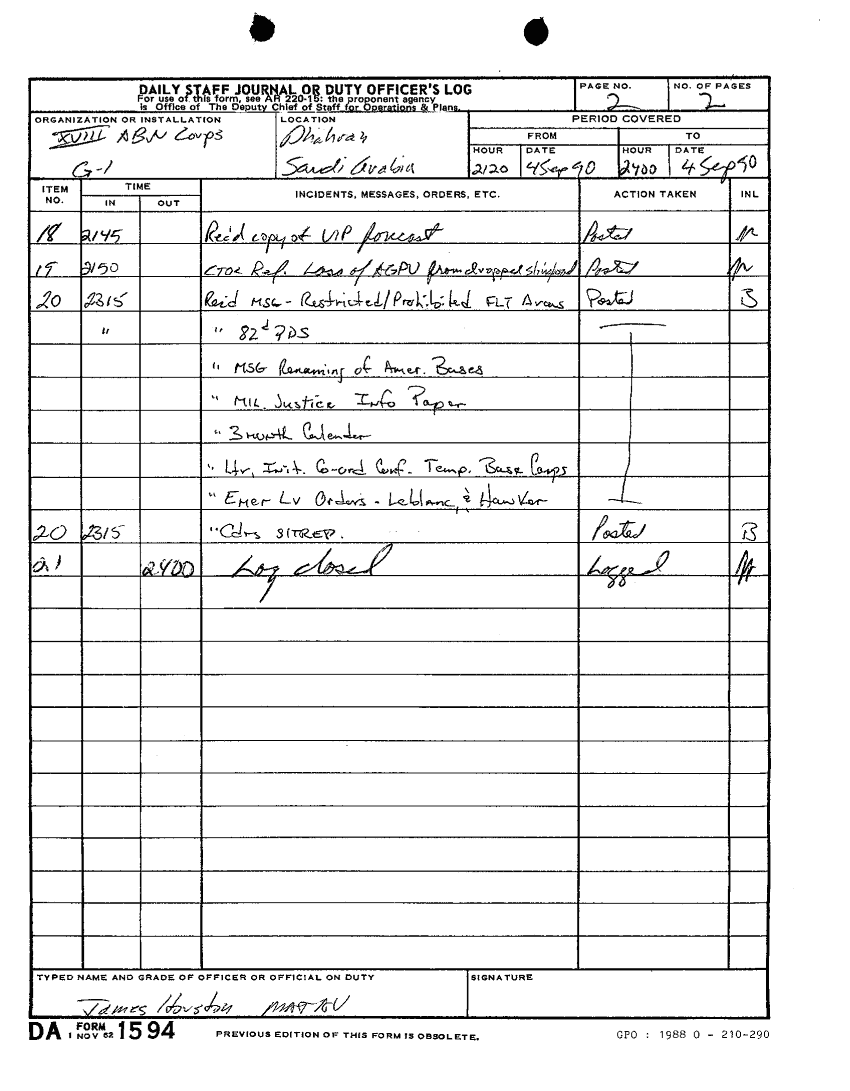 DAILY STAFF JOURNAL OR DUTY OFFICER'S LOG
For use of this form, see AR 220-15; the proponent agency
is Office of The Deputy Chief of Staff for Operations & Plans.
PAGE NO. 2
NO. OF PAGES 2
ORGANIZATION OR INSTALLATION
XVIII ABN Corps
G-1
LOCATION
Dhahran
Saudi Arabia
PERIOD COVERED
FROM TO
HOUR DATE HOUR DATE
2120 4Sep90 2400 4Sep90
ITEM NO. TIME IN OUT INCIDENTS, MESSAGES, ORDERS, ETC. ACTION TAKEN INL
18 2145 Rec'd copy of VIP forecast Posted
19 2150 CTOC Ref. Loss of AGPU from dropped slingload Posted
20 2315 Rec'd MSG - Restricted/Prohibited FLT Areas Posted B
" " 82d PDS
" MSG Renaming of Amer. Bases
" MIL. Justice Info Paper
" 3 month Calender
" Ltr, Init. Co-ord Conf. Temp. Base Camps
" Emer Lv Orders - Leblanc, & Hawker
20 2315 "Cdrs SITREP. Posted B
21 2400 Log closed Logged
TYPED NAME AND GRADE OF OFFICER OR OFFICIAL ON DUTY
James Houston
SIGNATURE
DA FORM 1 NOV 62 1594
PREVIOUS EDITION OF THIS FORM IS OBSOLETE.
GPO : 1988 O - 210-290